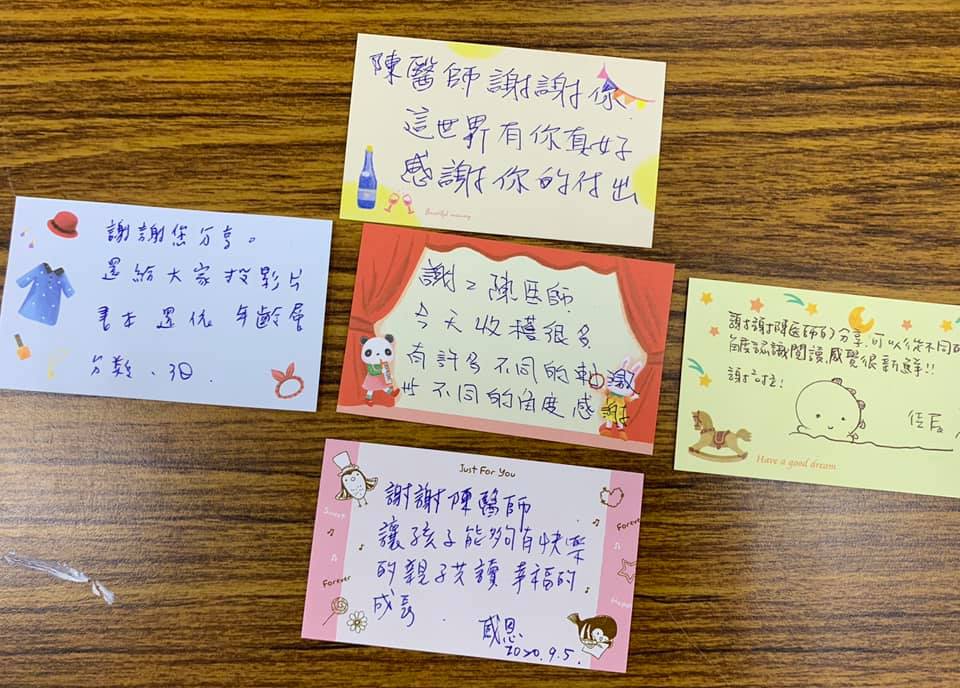 陳醫師謝謝你
這世界有你真好
感謝你的付出
Beautiful morning
謝謝您分享。
還給大家投影片
書本還依年齡層
分類、3Q.
謝2陳医師
今天收穫很多
有許多不同的刺激
性不同的角度感謝
謝謝陳医師的分享.可以從不同的
角度認識閱讀感覺很新鮮!!
謝
Have a good dream
Just For You
謝謝陳醫師
讓孩子能夠有快樂
的親子共讀 幸福的
成長.
感恩
2020.9.5.
Sweet
Forever
Forever